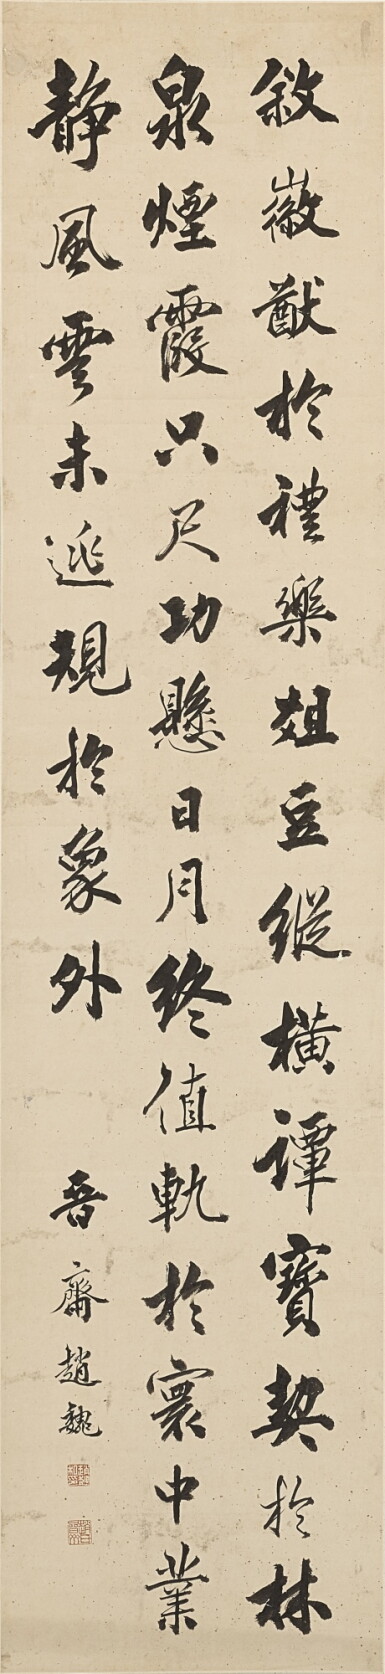 敘徽猷於禮樂俎豆縱橫譚寶契於林
泉煙霞只尺功懸日月終值軌於寰中業
靜風雲未逃規於象外
晉齋趙魏